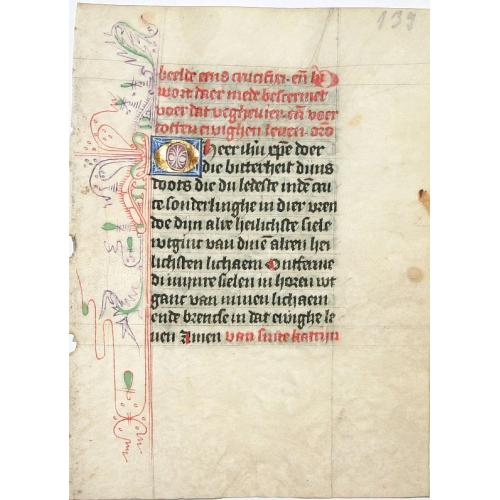 139
beelde eens crucifixi. eñ
wort daer mede bescermet
voer dat veghevier. eñ voer
totten ewighen leven. oro
O heer ihu xpe doer
die bitterheit dijns
doots die du ledeste indē cru
ce sonderlinghe in dier vren
doe dijn alre heilichste siele
wtginc van dinē alren hei
lichsten lichaem Ontferme
di mijnre sielen in horen wt
ganc van minen lichaem
ende brencse in dat ewighe le
uen Amen van sinte katrijn